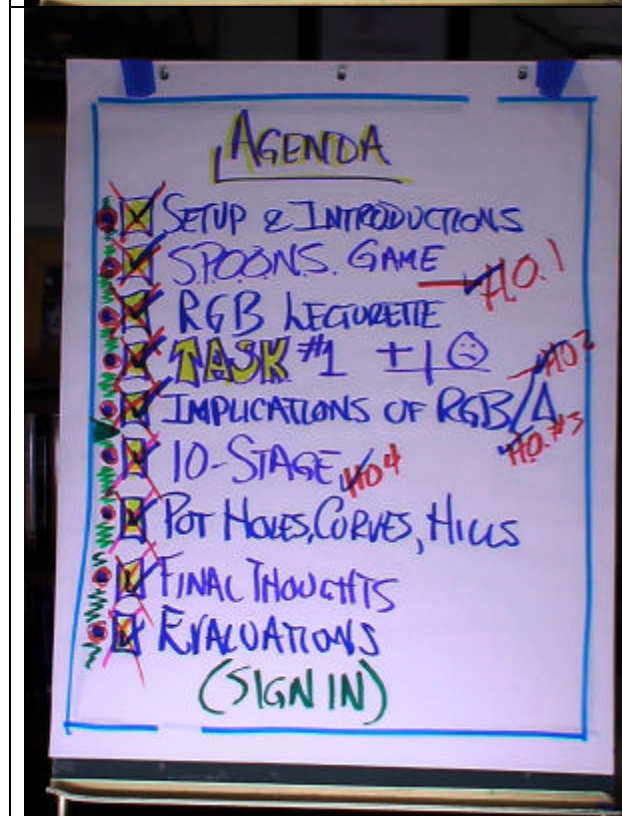 AGENDA
SETUP & INTRODUCTIONS
S.P.O.O.N.S. GAME
HO.1
RGB LECTURETTE
TASK #1 +|☹
HO2
IMPLICATIONS OF RGB/Δ
HO.#3
10-STAGE HO4
POT HOLES, CURVES, HILLS
FINAL THOUGHTS
EVALUATIONS
(SIGN IN)